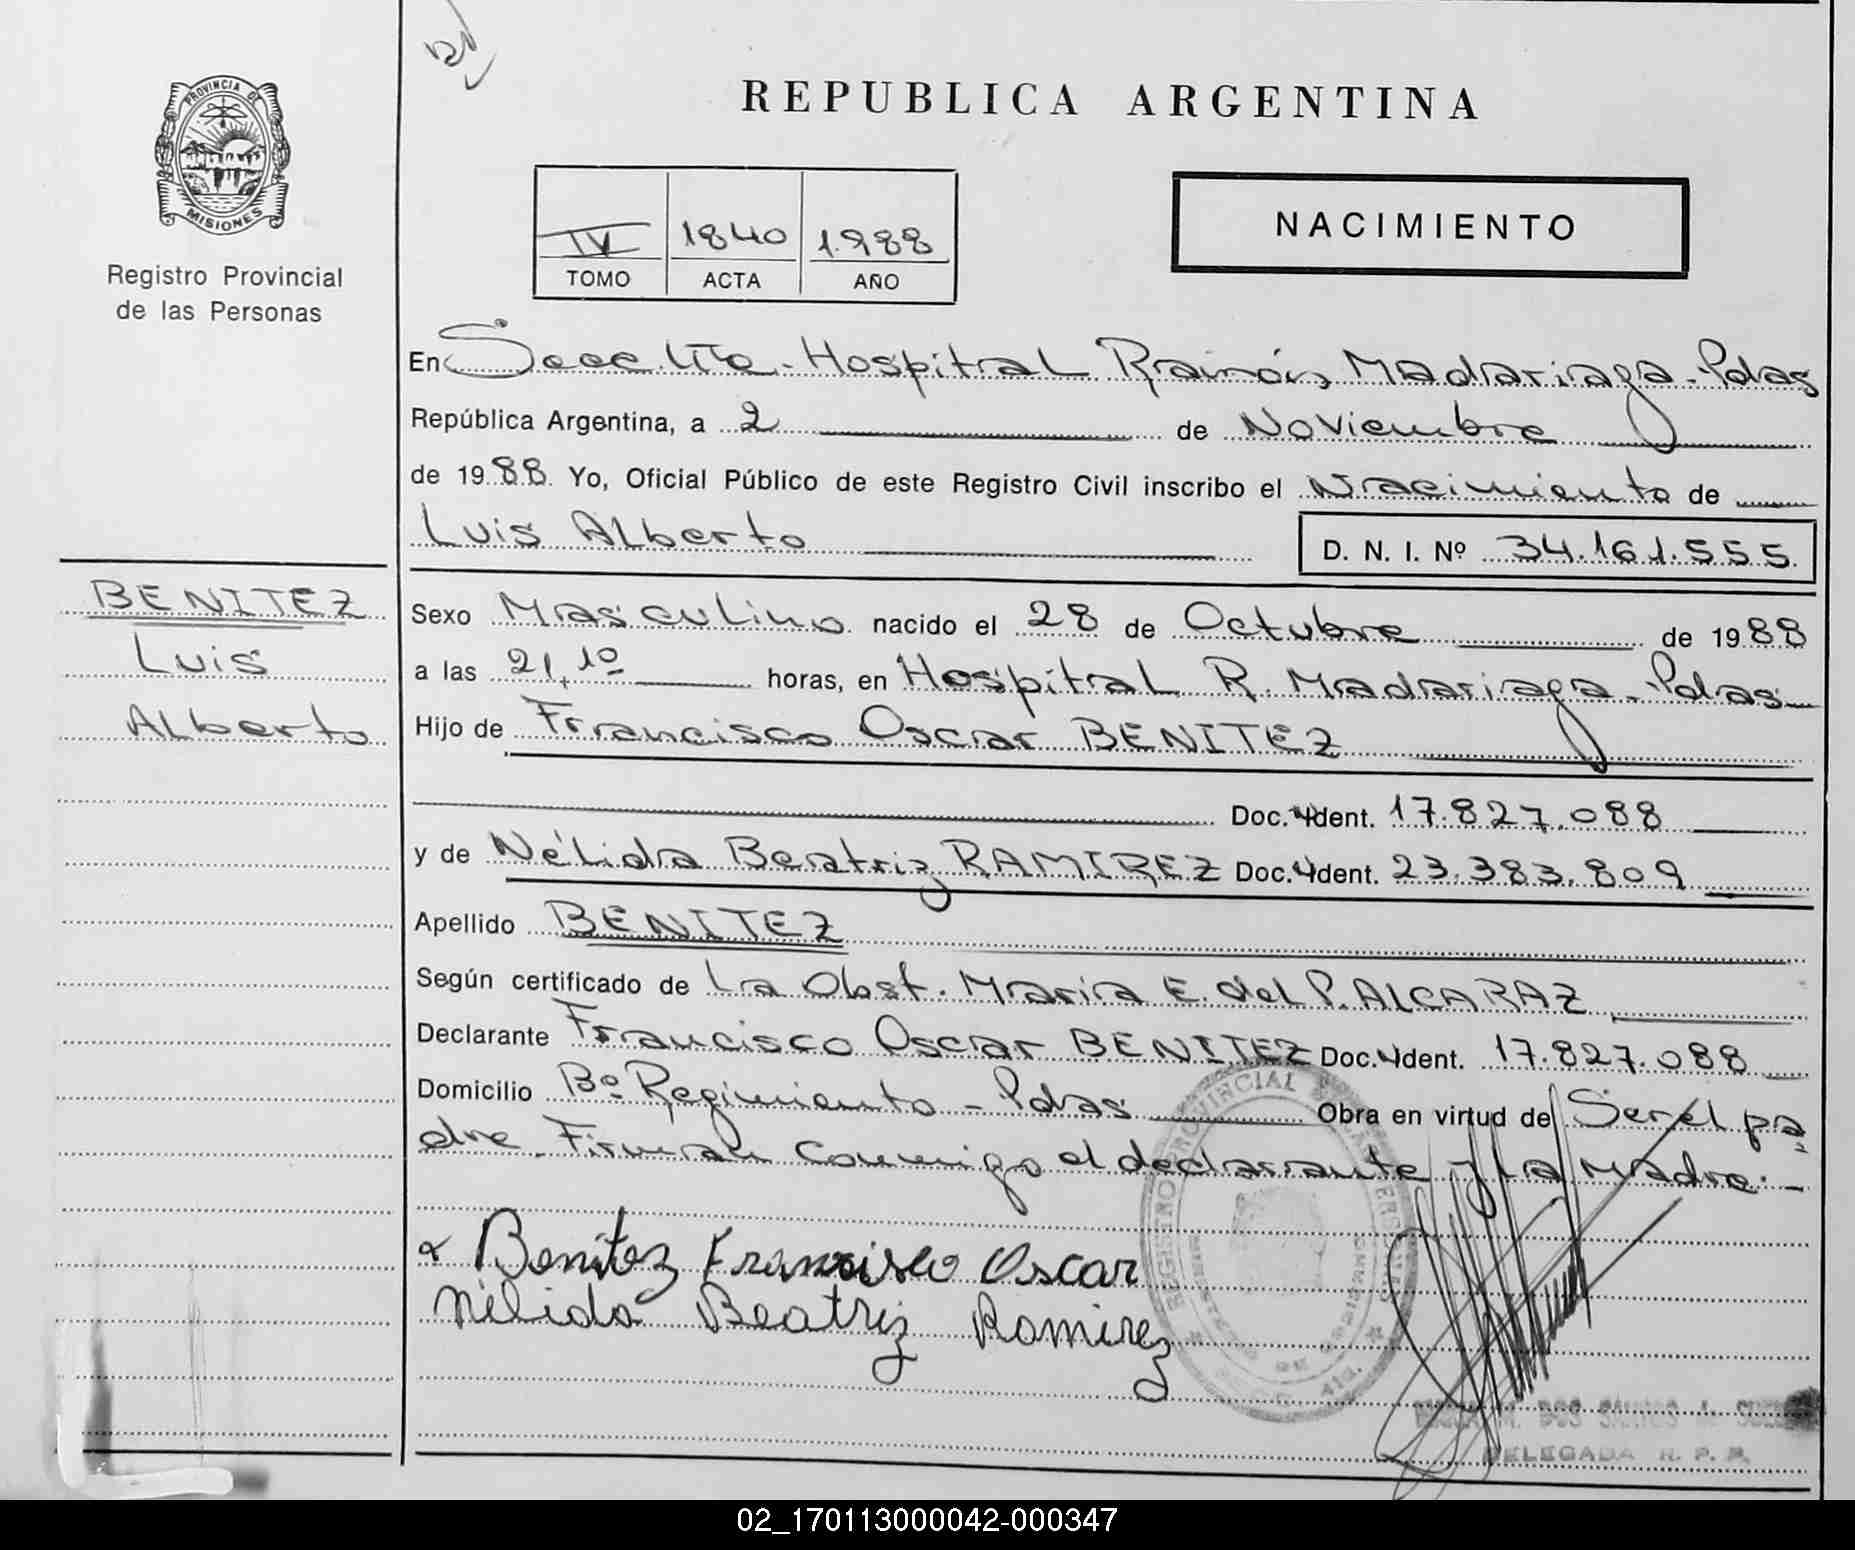 PROVINCIA DE
MISIONES
Registro Provincial
de las Personas
REPUBLICA ARGENTINA
IV 1840 1.988
TOMO ACTA AÑO
NACIMIENTO
En Secc. 4ta - Hospital Ramón Madariaga - Pdas
República Argentina, a 2 de Noviembre
de 1988. Yo, Oficial Público de este Registro Civil inscribo el Nacimiento de
Luis Alberto D. N. I. Nº 34.161.555
BENITEZ
Luis
Alberto
Sexo Masculino nacido el 28 de Octubre de 1988
a las 21,10 horas, en Hospital R. Madariaga - Pdas
Hijo de Francisco Oscar BENITEZ
Doc. Ident. 17.827.088
y de Nélida Beatriz RAMIREZ Doc. Ident. 23.383.809
Apellido BENITEZ
Según certificado de La Obst. Maria E. del P. ALCARAZ
Declarante Francisco Oscar BENITEZ Doc. Ident. 17.827.088
Domicilio Bº Regimiento - Pdas Obra en virtud de Ser el pa
dre. Firman Conmigo el declarante y la Madre. -
Benitez Francisco Oscar
Nélida Beatriz Ramirez
REGISTRO PROVINCIAL
DOS SANTOS
DELEGADA R. P. P.
02_170113000042-000347